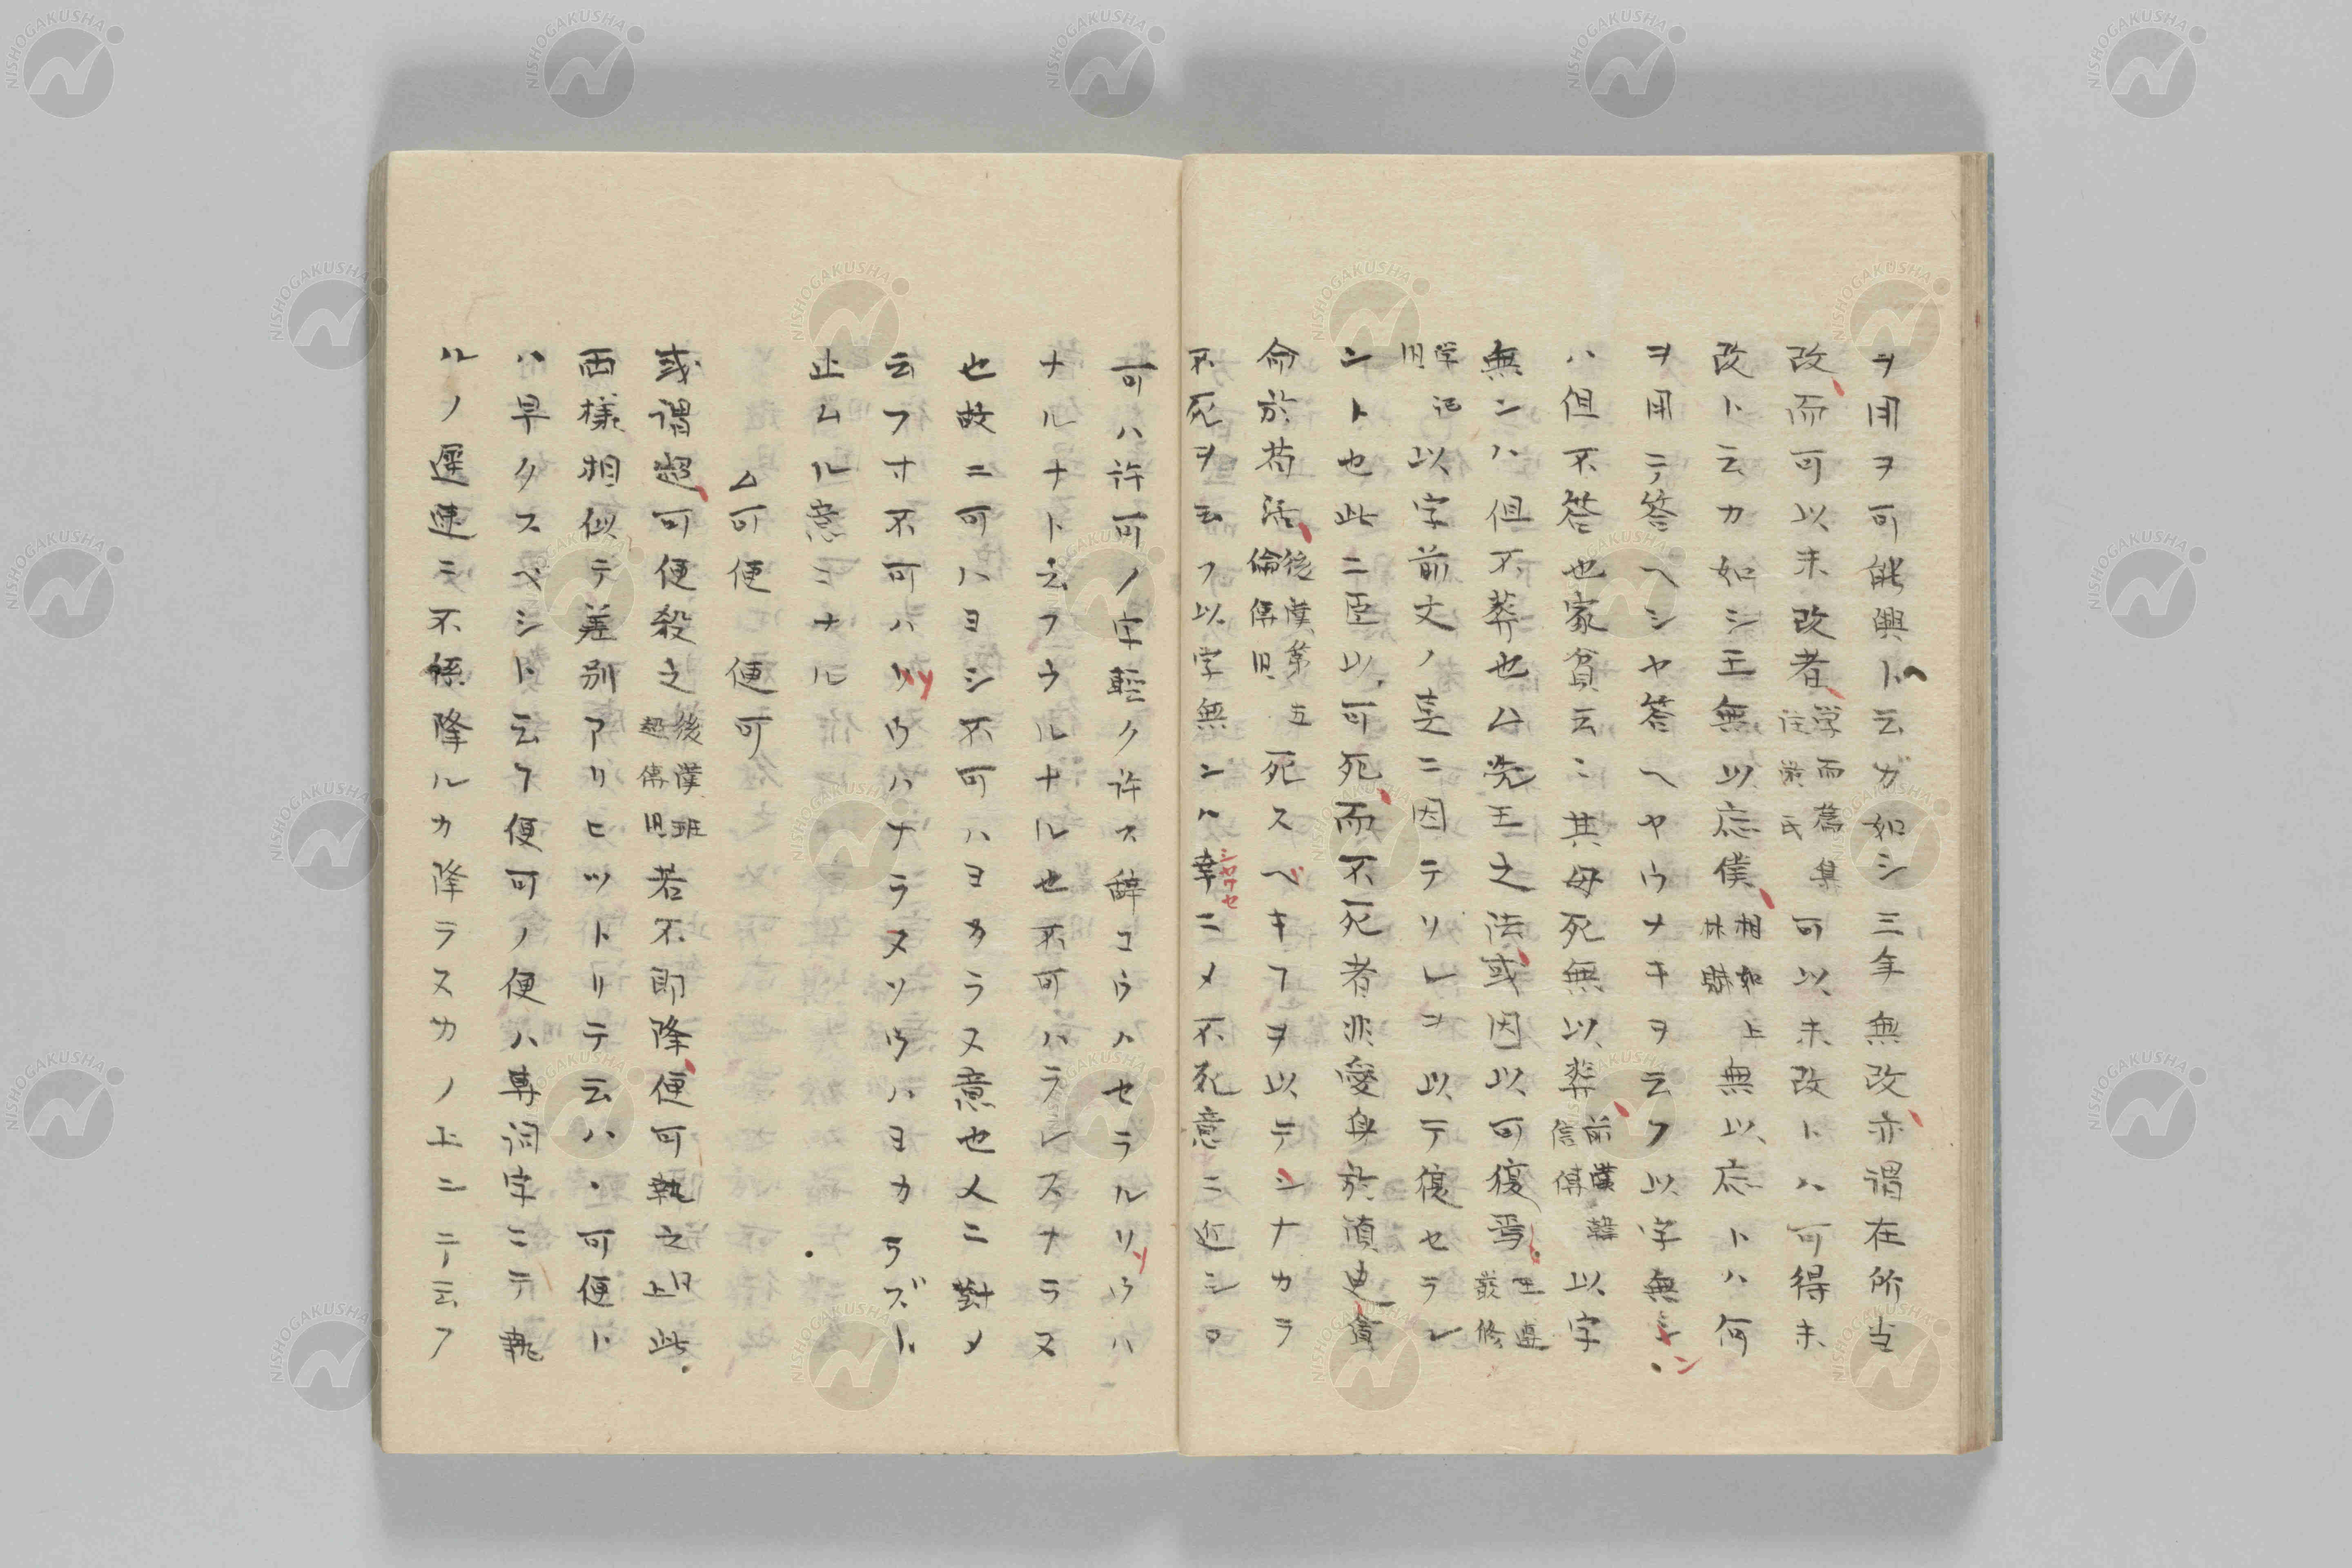 ヲ用ヲ可能與ト云ガ如シ三年無改亦謂在所当
改而可以未改者学而為集註游氏可以未改トハ可得未
改ト云カ如シ王無以応僕相如上林賦無以応トハ何
ヲ用テ答ヘシヤ答ヘヤウナキヲ云フ以字無ン
ハ但不答也家貧云々其母死無以葬前漢韓信傳以字
無ンハ但不葬也以先王之法或因以可復焉王遵巌修
学記旧以字前文ノ意ニ因テリレヲ以テ復セラレ
ント也此ニ臣以可死而不死者非愛身於須臾貪
命於苟活後漢第五倫傳旧死スベキフヲ以テシナカラ
不死ヲ云フ以字無ンハ幸シヤワセニメ不死意ニ近シ
可ハ許可ノ字輕ク许ス辞コウハセラルリウハ
ナルナト云フウルナルナル也不可ハラレスナラヌ
也故ニ可ハヨシ不可ハヨカラヌ意也人ニ對メ
云フ寸不可ハソウハナラヌソウハヨカラズト
止ムル意ニナル
△可便 便可
或謂超可便殺之後漢班超傳旧若不即降便可執之同上此
両様相似テ差別アリヒツトリテ云ハ可便ト
ハ早クスベシト云フ便可ノ便ハ專詞字ニテ執
ルノ遲速ニ不係降ルカ降ラスカノ上ニテ云フ
NISHOGAKUSHA